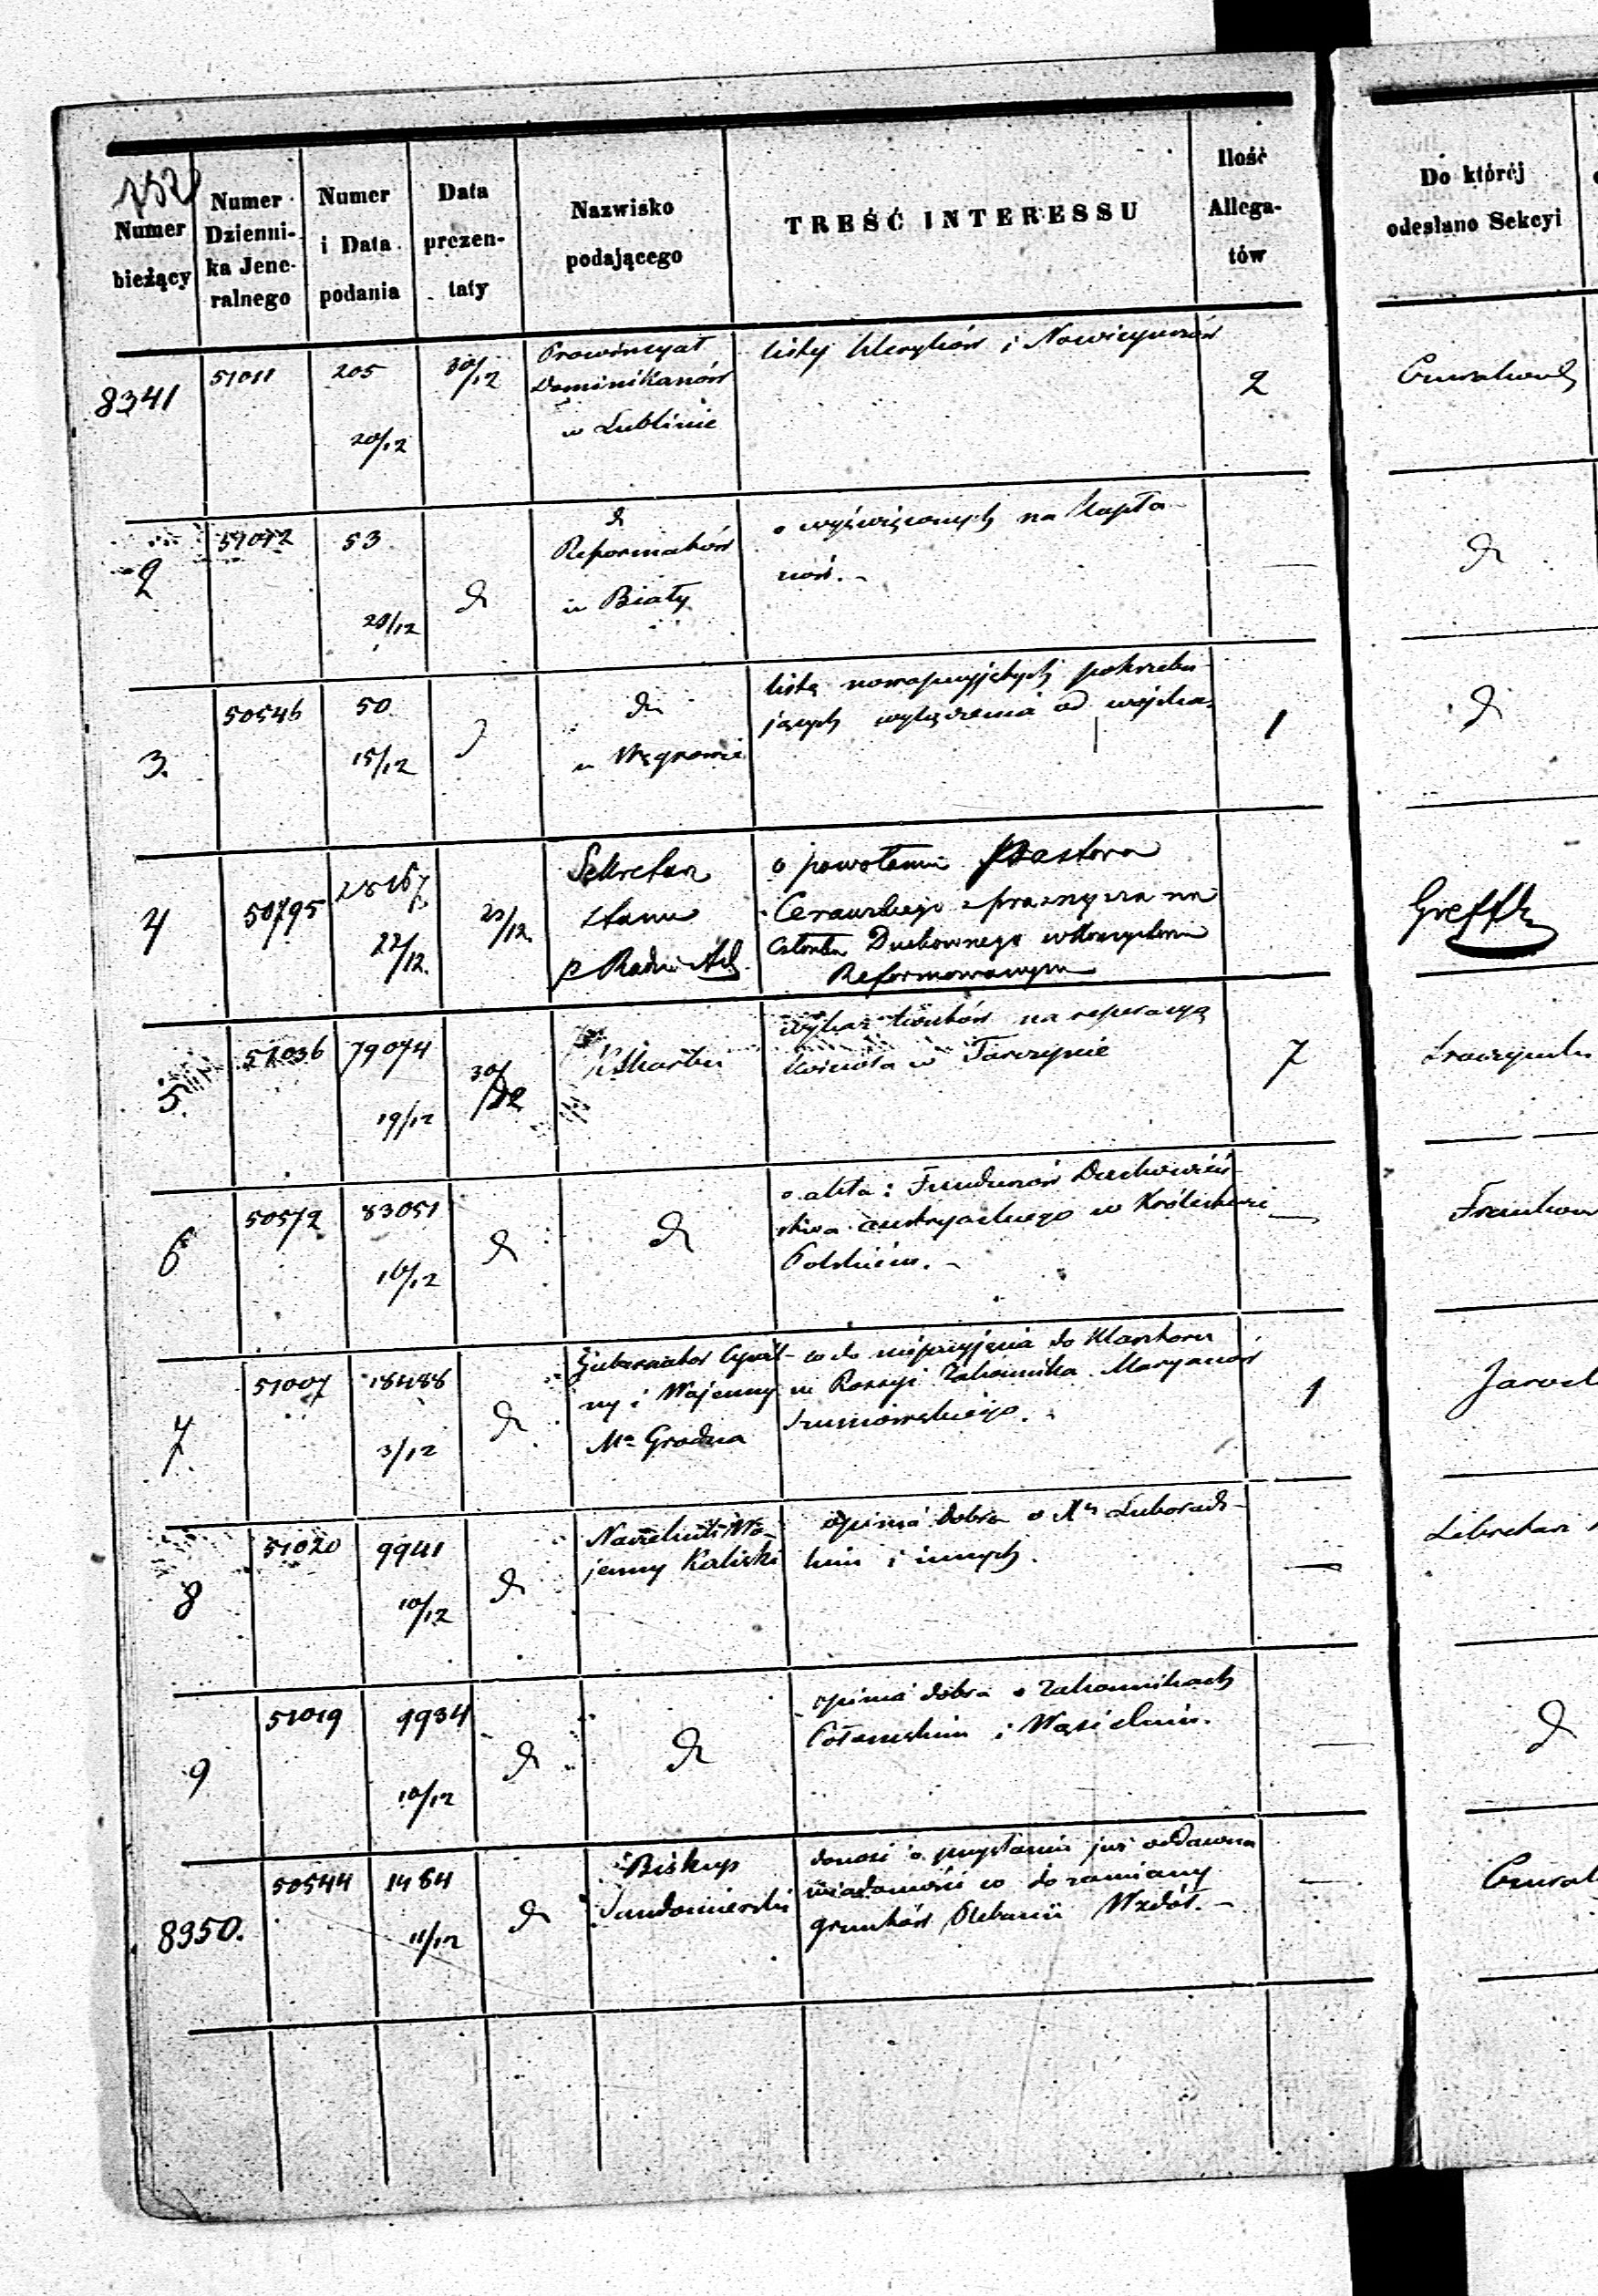 Numer bieżący
Numer Dzienni-ka Jene-ralnego
Numer i Data podania
Data prezen-taty
Nazwisko podającego
TREŚĆ INTERESSU
Ilość Allega-tów
Do któréj odesłano Sekcyi
8341 51011 205 20/12 30/12
Prowincyał
Dominikanów
w Lublinie
listy Kleryków i Nowicyuszów
2
2 51012 53 20/12 dt
dt
Reformatów
w Biały
o wyświęconych na Kapła-
nów. -
—
dt
3. 50546 50 15/12
dt
w Węgrowie
listę nowoprzyjętych potrzebu-
jących wyłączenia od wojska
1
dt
4 50795 22/12. 23/12.
Sekretarz
stanu
p Radzie Ad.
o powołaniu Pastora
na
członka Duchownego w Konsystorzu
Reformowanym
5. 51036 79074 19/12 30/12
K. Skarbu
wykaz kosztów na reperacyą
kościoła w Tarczynie
7
6 50572 83051 16/12 dt
dt
o akta: Funduszów Duchowień-
stwa austryackiego w Królestwie
Polskiem. -
—
7. 51007 18488 3/12 dt
Gubernator Cywil-
ny i Wojenny
Mta Grodna
co do nieprzyjęcia do Klasztoru
w Rossyi Zakonnika Maryanów
1
8 51020 9941 10/12 dt
Naczelnik Wo-
jenny Kaliski
opinia dobra o Xs Luboradz-
kim i innych.
—
9 51019 9934 10/12 dt
dt
opinia dobra o Zakonnikach
i
—
dt
8350. 50544 1464 11/12 dt
Biskup
Sandomierski
donosi o przysłaniu już oddawna
wiadomości co do zamiany
gruntów Plebanii Wzdół. -
—